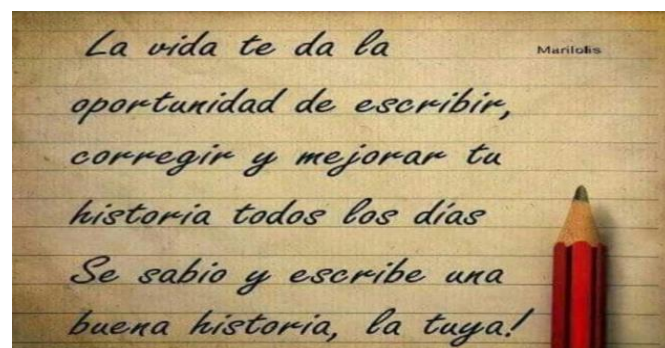 La vida te da la
Marilolis
oportunidad de escribir,
corregir y mejorar tu
historia todos los días
Se sabio y escribe una
buena historia, la tuya!